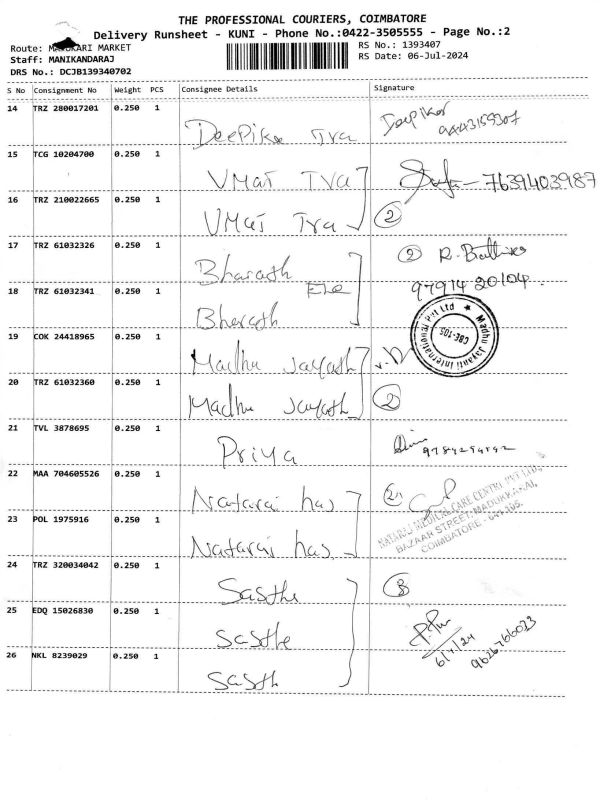 THE PROFESSIONAL COURIERS, COIMBATORE
Delivery Runsheet - KUNI - Phone No.:0422-3505555 - Page No.:2
Route: MARKET
RS No.: 1393407
Staff: MANIKANDARAJ
RS Date: 06-Jul-2024
DRS No.: DCJB139340702
S No Consignment No Weight PCS Consignee Details Signature
14 TRZ 280017201 0.250 1 Deepika Tra Deepika
9443159307
15 TCG 10204700 0.250 1 VMat TVA 7639403987
16 TRZ 210022665 0.250 1 VMat Tra 2
17 TRZ 61032326 0.250 1 Bharath 2 R.
18 TRZ 61032341 0.250 1 Bharath Ele 97914 20104
19 COK 24418965 0.250 1 Madhu Jayath
Madhu Jayanti International Pvt Ltd
CBE-105
20 TRZ 61032360 0.250 1 Madhu Jayath 2
21 TVL 3878695 0.250 1 Priya
22 MAA 704605526 0.250 1 Natarai has 2
23 POL 1975916 0.250 1 Natarai has
NATARAJ MEDICAL CARE CENTRE PVT LTD,
BAZAAR STREET, MADUKKARAI,
COIMBATORE - 641 105.
24 TRZ 320034042 0.250 1 Sasthe 3
25 EDQ 15026830 0.250 1 Sasthe
6/7/24 9626766023
26 NKL 8239029 0.250 1 Sasth